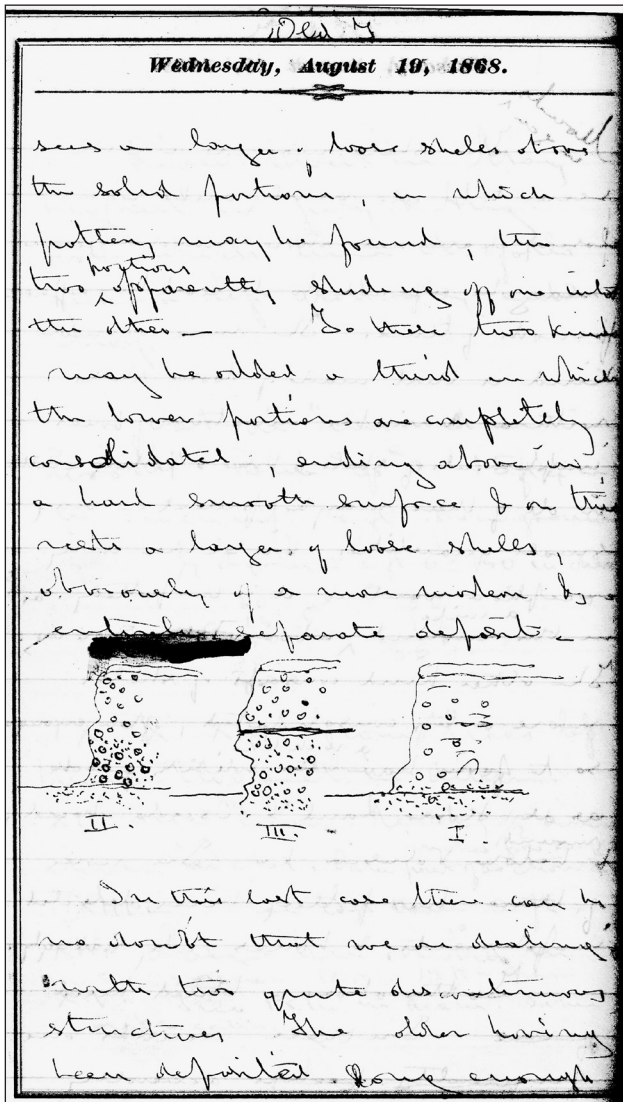 Wednesday, August 19, 1868.
sees a layer of loose shells above
the solid portions, in which
pottery may be found, the
portions
two ^ apparently shading off one into
the other — To these two kinds
may be added a third in which
the lower portions are completely
consolidated, ending above in
a hard smooth surface & on this
rests a layer of loose shells,
obviously of a more modern &
entirely separate deposit —
II. III. I.
In this last case there can be
no doubt that we are dealing
with two quite discontinuous
structures The older having
been deposited long enough